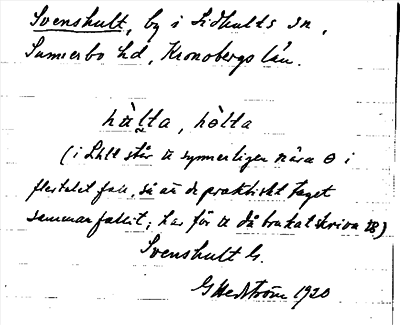 Svenshult, by i Lidhults sn,
Sunnerbo hd, Kronobergs län.
hòlta
(i Lhlt står ɵ i
flertalet fall, så att de praktiskt taget
sammanfallit; har för då brukat skriva)
Svenshult G.
G Hedström 1920